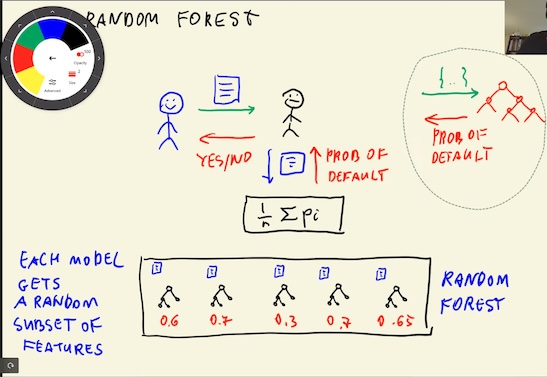 RANDOM FOREST
100
Opacity
2
Size
Advanced
{..}
YES/NO
PROB OF
DEFAULT
PROB OF
DEFAULT
1/n Σ pi
EACH MODEL
GETS
A RANDOM
SUBSET OF
FEATURES
0.6 0.7 0.3 0.7 0.65
RANDOM
FOREST